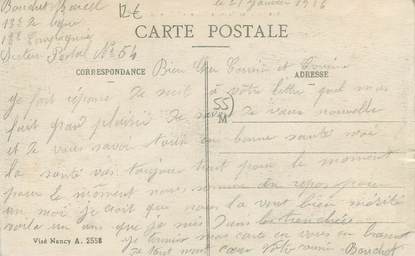 Bouchot Marcel
132e
12€
le 21 janvier 1916
13e Compagnie
Secteur Postal No 54
CARTE POSTALE
CORRESPONDANCE
ADRESSE
Bien Cher Cousin et Cousine
je fait réponse de suit à votre lettre quel nous
fait grand plaisir de savoir de vous nouvelle
et de vous savoir toute en bonne santé moi
la santé vas toujours bien pour le moment
pour le moment nous somme en repos pour
un moi je crait que nous la vont bien mérité
voila un ans que je suis dans les tranchées
je termine ma carte en vous en
de tout mon cœur Votre cousin Bouchot
55
M
Visé Nancy A. 2558